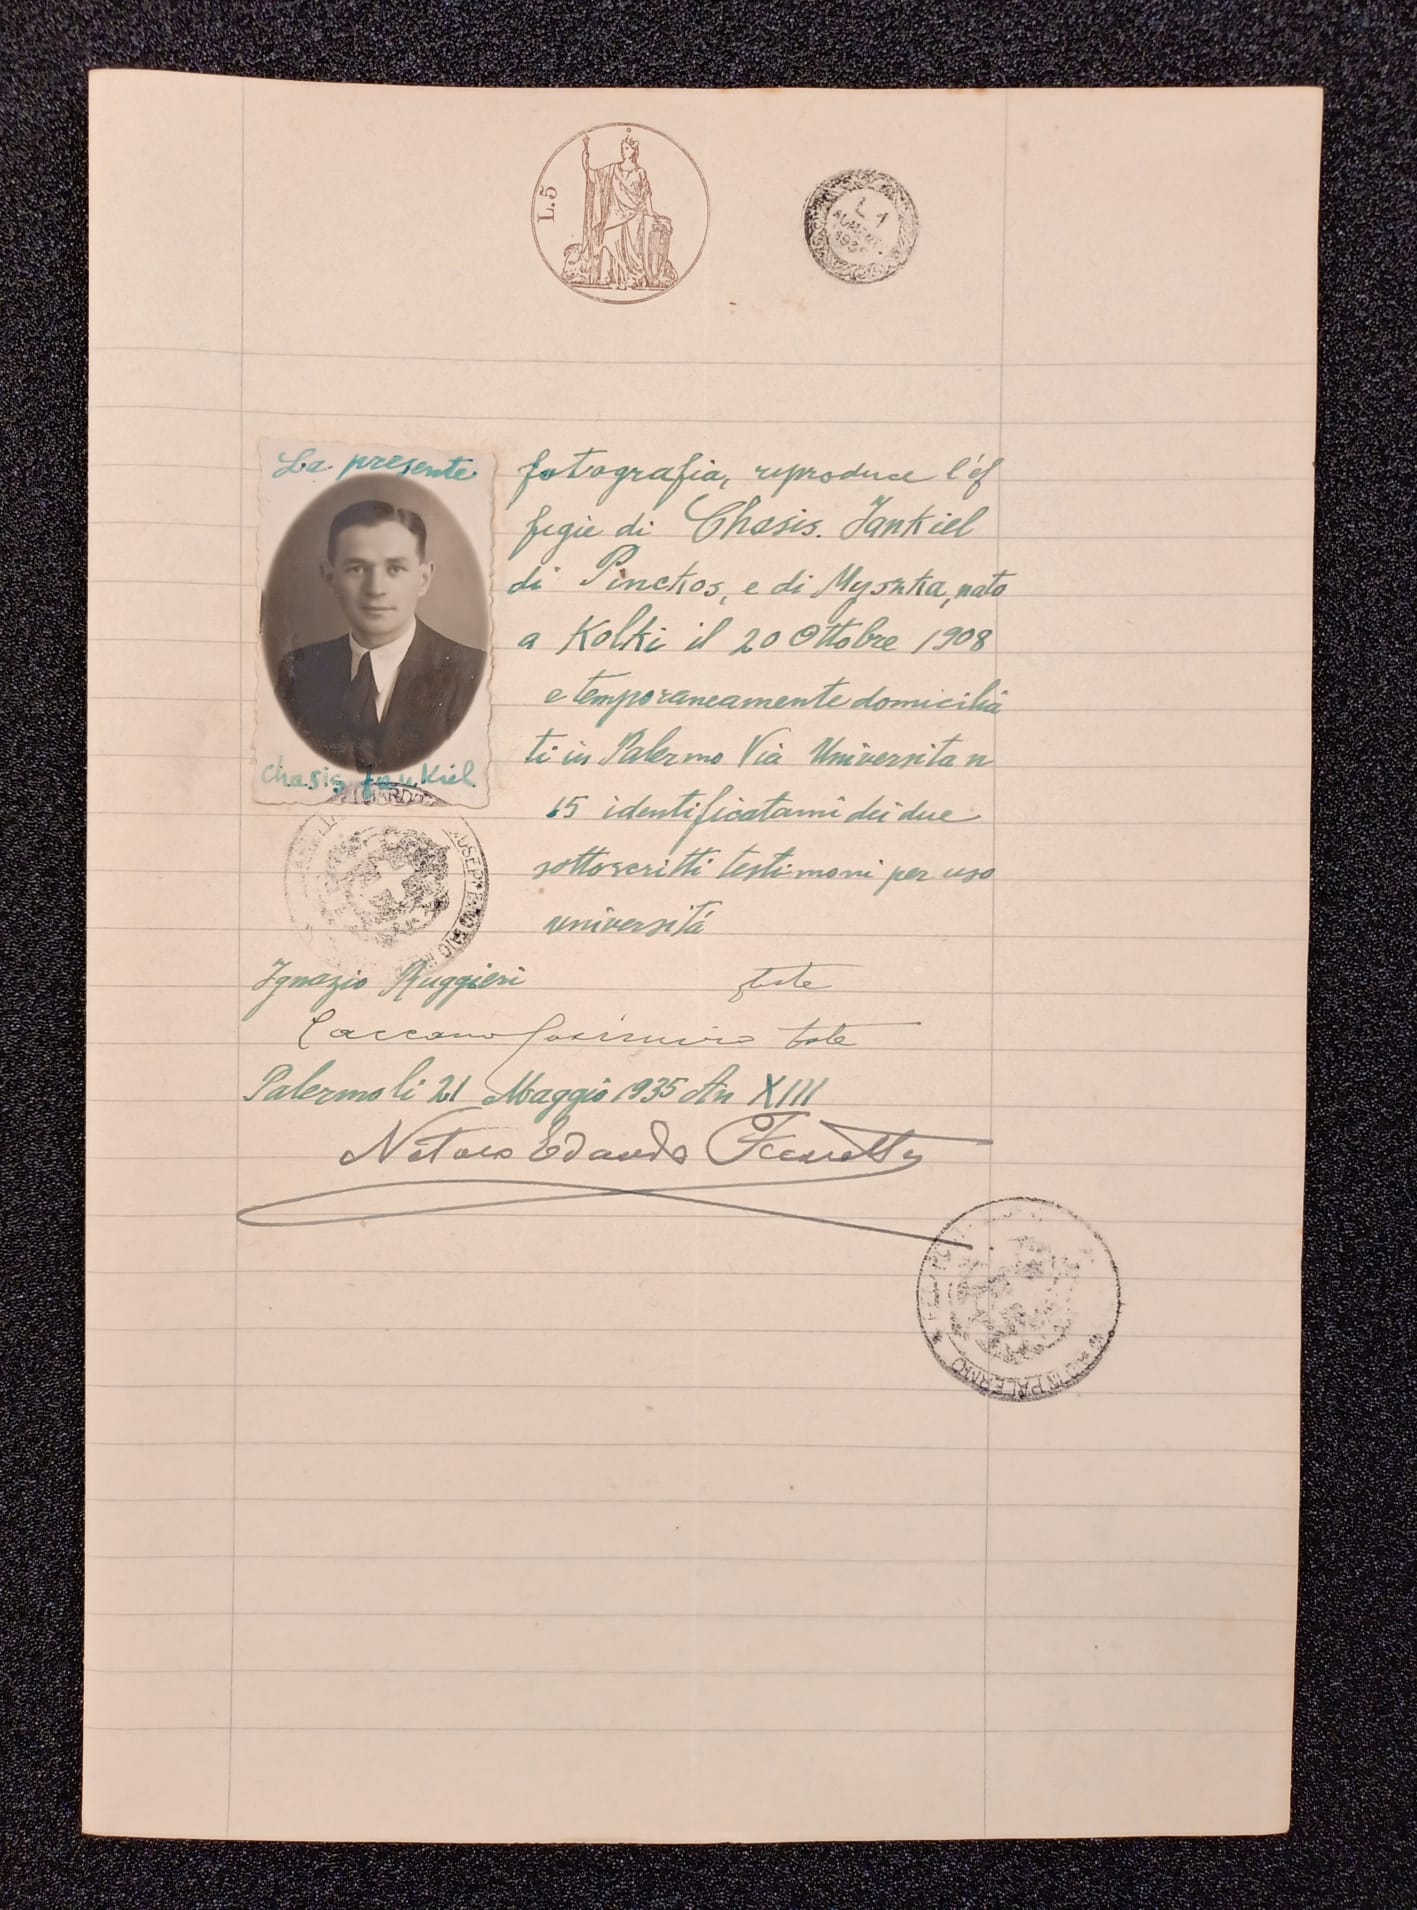 L. 5
L. 1
La presente fotografia, reproduce l'ef
figie di Chasis. Jankiel
di Pinckos, e di Myszka, nato
a Kolki il 20 Ottobre 1908
e temporaneamente domicilia
ti in Palermo Via Universita n
15 identificatami dei due
sottoscritti testimoni per uso
universitá
Chasis Jankiel
Ignazio Ruggieri teste
teste
Palermo li 21 Maggio 1935 An XIII
Notaro Edoardo
IN PALERMO